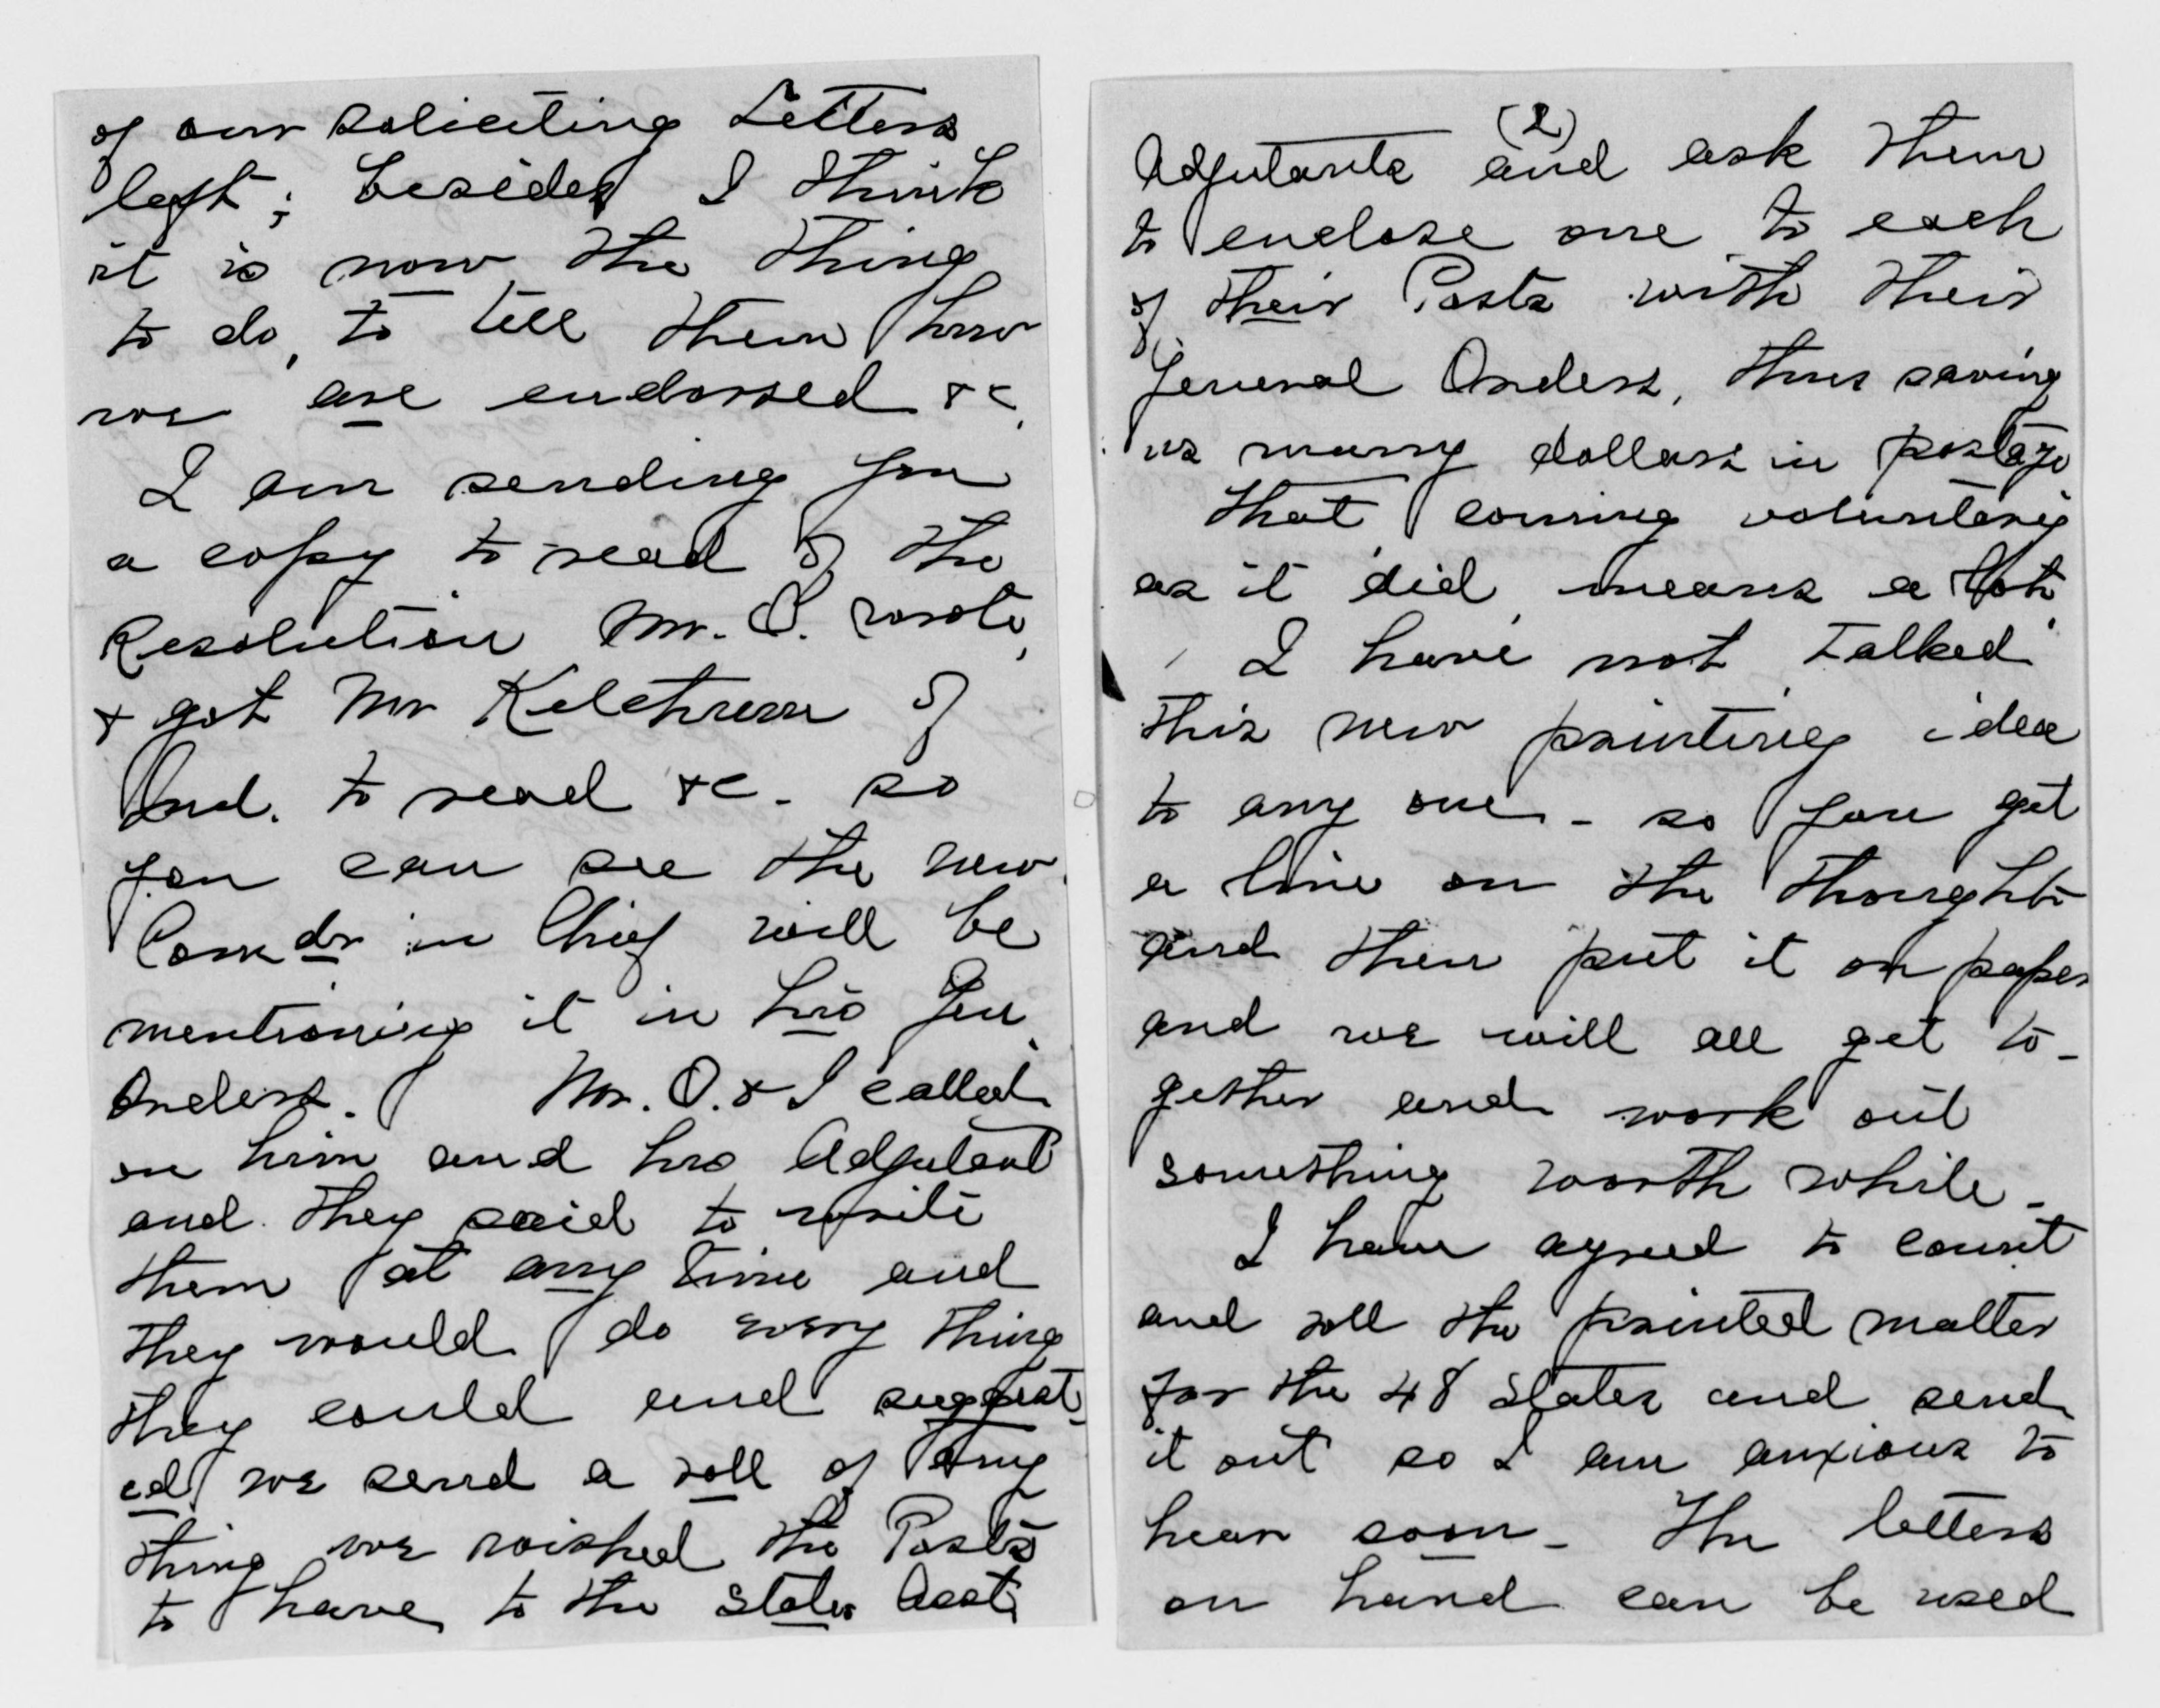 of our soliciting Letters
left; besides I think
it is now the thing
to do, to tell them how
we are endorsed &c.
I am sending you
a copy to read of the
Resolution Mr. O. wrote,
& got Mr Ketchum of
Ind. to read &c. so
you can see the new
Comdr in Chief will be
mentioning it in his Gen.
Orders. Mr. O. & I called
on him and his Adjutant
and they said to write
them at any time and
they would do every thing
they could and suggest-
ed we send a roll of any
thing we wished the Posts
to have to the State Asst.
(2)
Adjutants and ask them
to enclose one to each
of their Posts with their
General Orders, thus saving
us many dollars in postage
That coming voluntary
as it did means a lot.
I have not talked
this new printing idea
to any one - so you get
a line on the thought
and then put it on paper
and we will all get to-
gether and work out
something worth while -
I have agreed to count
and roll the printed matter
for the 48 States and send
it out so I am anxious to
hear soon - The letters
on hand can be used